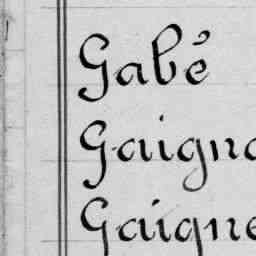 Gabé
Gaigna
Gaigne